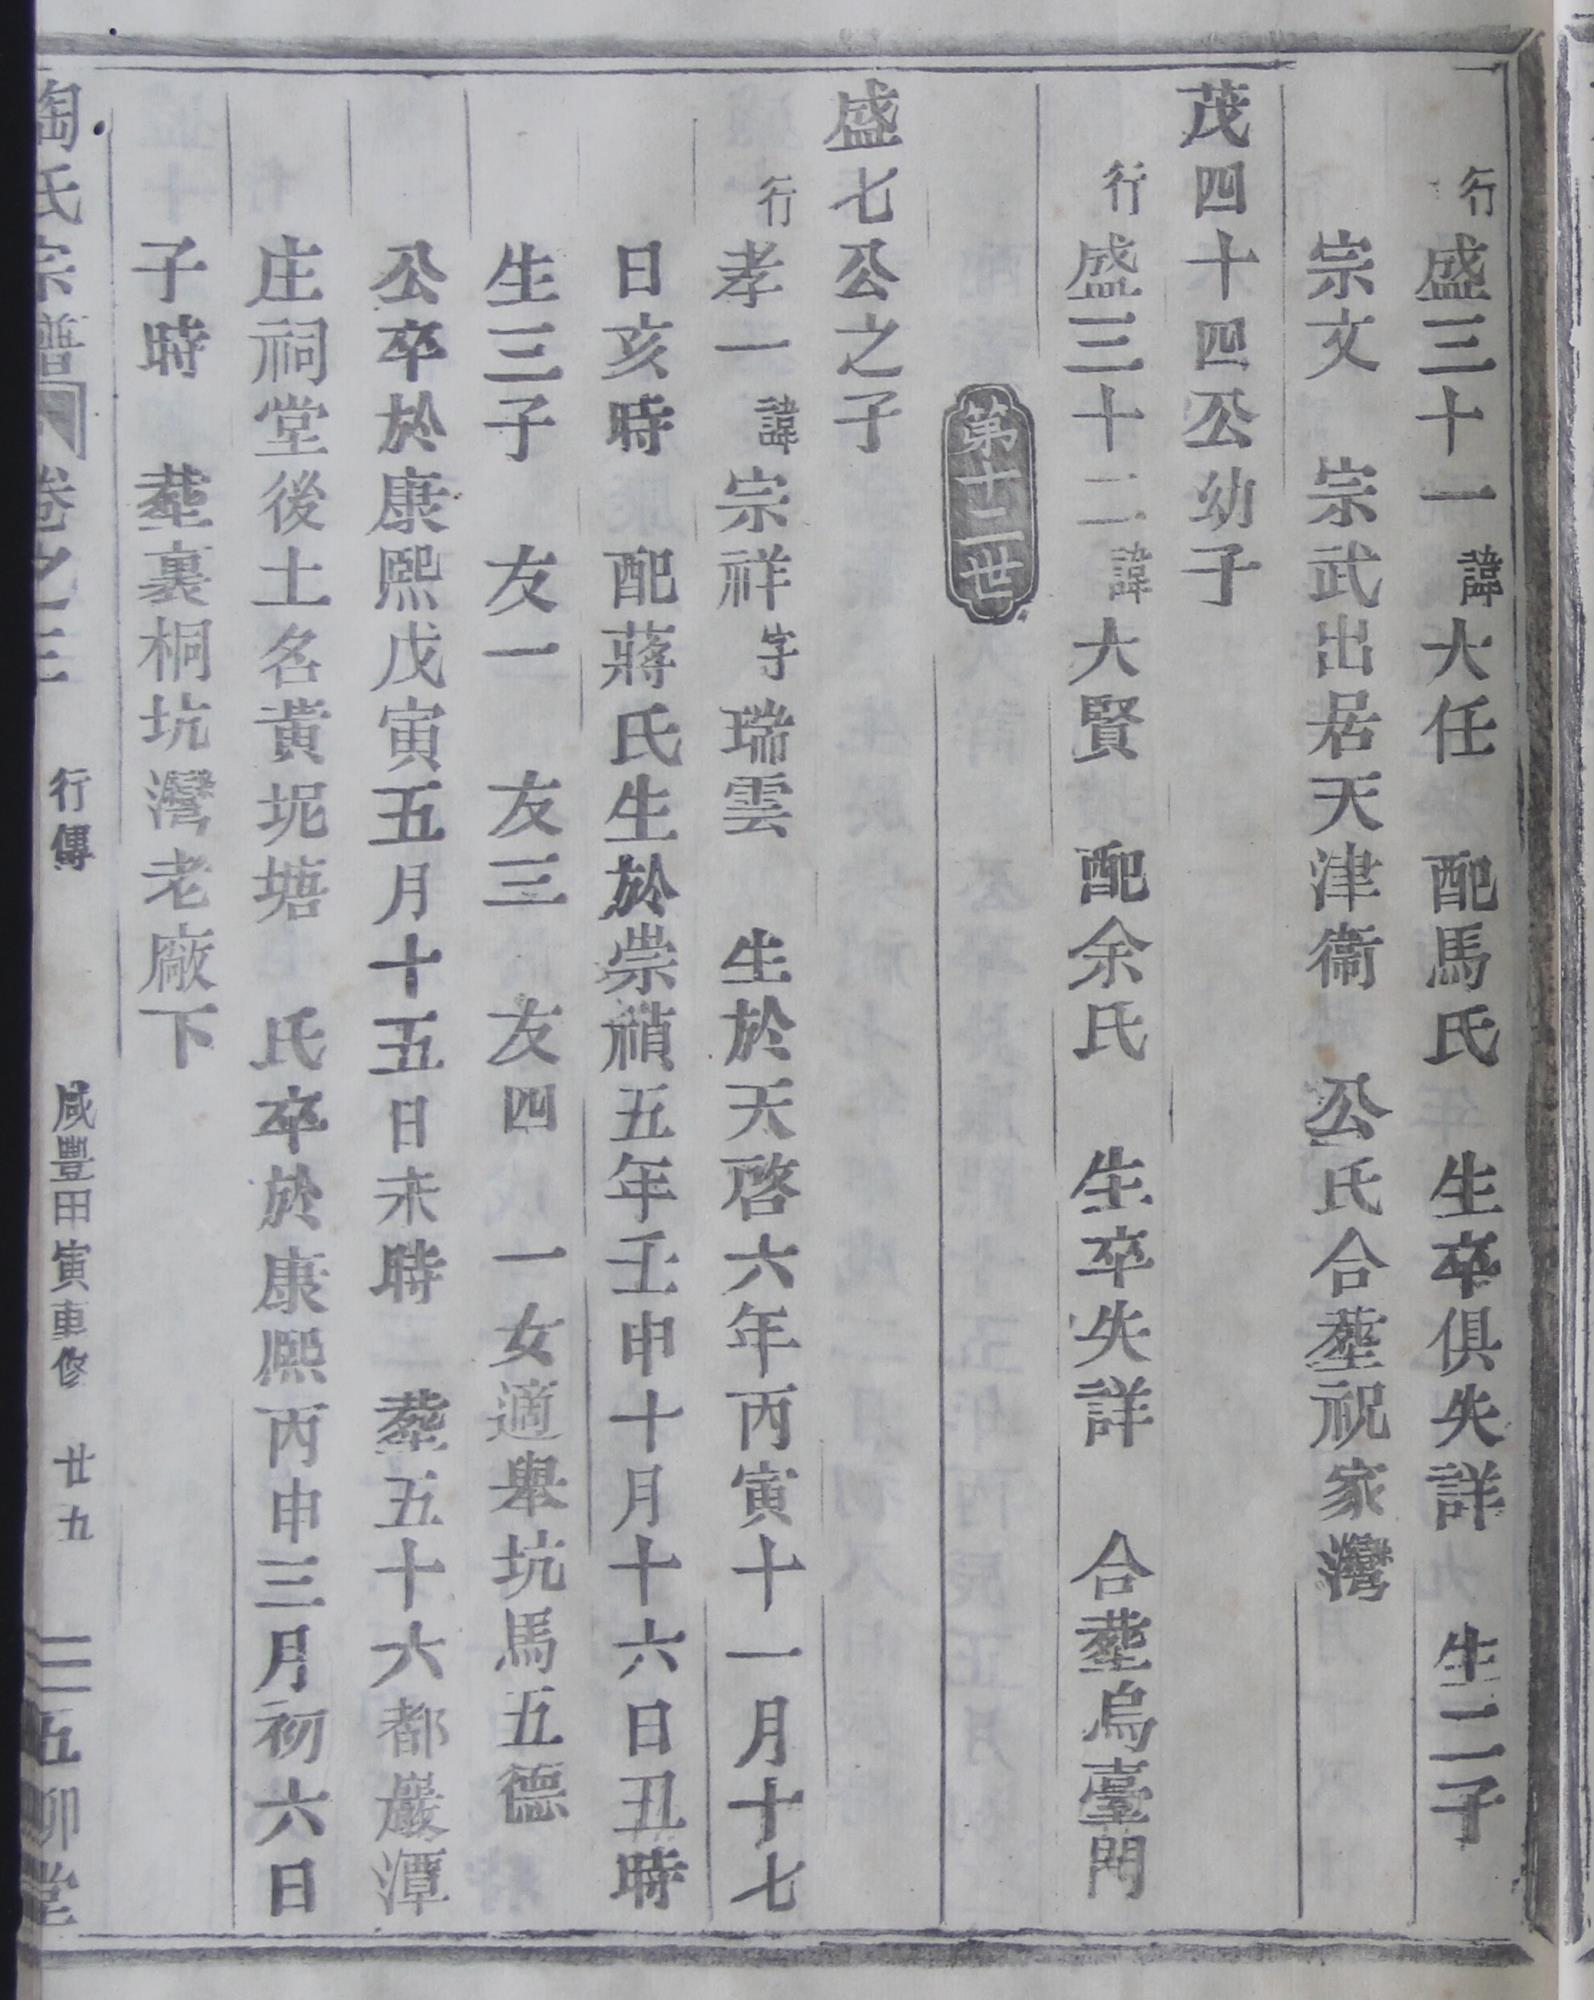 行盛三十一諱大任 配馬氏 生卒俱失詳 生二子
宗文 宗武出居天津衞 公氏合塟祝家灣
茂四十四公幼子
行盛三十二諱大賢 配余氏 生卒失詳 合塟烏臺門
第十二世
盛七公之子
行孝一諱宗祥字瑞雲 生於天啓六年丙寅十一月十七
日亥時 配蔣氏生於崇禎五年壬申十月十六日丑時
生三子 友一 友三 友四 一女適舉坑馬五德
公卒於康熙戊寅五月十五日未時 塟五十六都巖潭
庄祠堂後土名黃坭塘 氏卒於康熙丙申三月初六日
子時 塟裏桐坑灣老廠下
陶氏宗譜 卷之三 行傳 咸豐甲寅重修 廿九 五柳堂